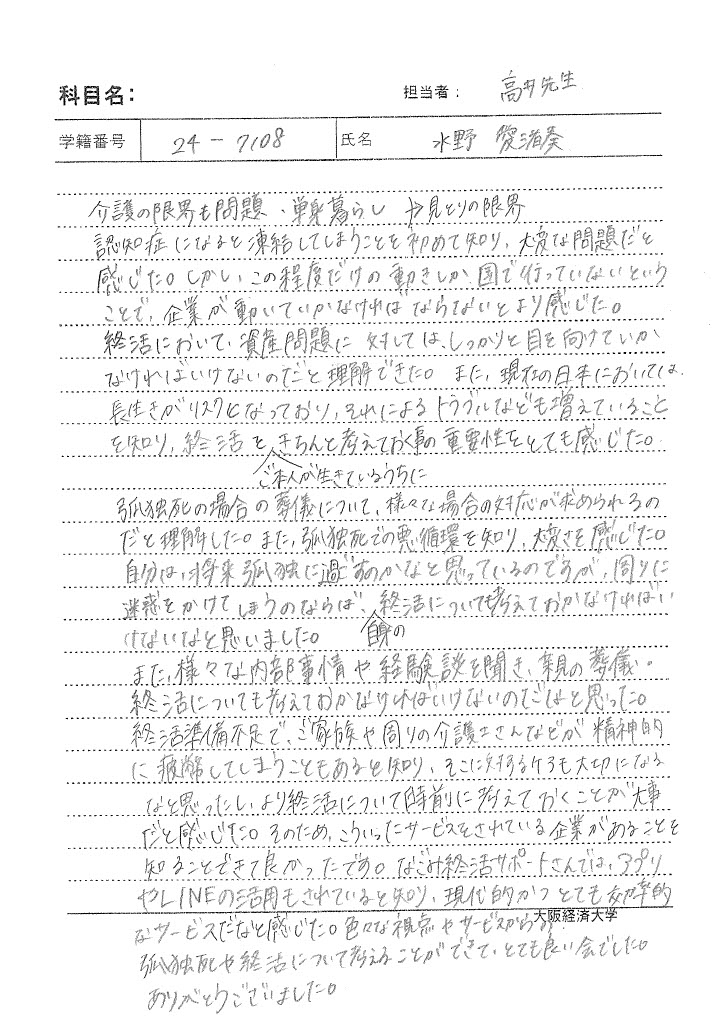 科目名:
担当者: 高井先生
学籍番号 24-7108 氏名 水野 愛渚葵
介護の限界も問題・単身暮らし → 見とりの限界
認知症になると凍結してしまうことを初めて知り、大変な問題だと
感じた。しかし、この程度だけの動きしか国で行っていないという
ことで、企業が動いていかなければならないとより感じた。
終活において、資産問題に対しては、しっかりと目を向けていか
なければいけないのだと理解できた。また、現在の日本においては、
長生きがリスクとなっており、それによるトラブルなども増えていること
を知り、終活を、きちんと考えておく事の重要性をとても感じた。
ご本人が生きているうちに
孤独死の場合の葬儀について、様々な場合の対応が求められるの
だと理解した。また、孤独死での悪循環を知り、大変さを感じた。
自分は、将来孤独に過ごすのかなと思っているのですが、周りに
迷惑をかけてしまうのならば、終活についても考えておかなければい
けないなと思いました。 自身の
また、様々な内部事情や経験談を聞き、親の葬儀・
終活についても考えておかなければいけないのではと思った。
終活準備不足で、ご家族や周りの介護士さんなどが精神的
に疲弊してしまうこともあると知り、そこに対するケアも大切になる
なと思ったし、より終活について事前に考えておくことが大事
だと感じた。そのため、こういったサービスをされている企業があることを
知ることできて良かったです。なごみ終活サポートさんでは、アプリ
やLINEの活用もされていると知り、現代的かつとても効率的
大阪経済大学
なサービスだなと感じた。色々な視点やサービスから
孤独死や終活について考えることができて、とても良い会でした。
ありがとうございました。